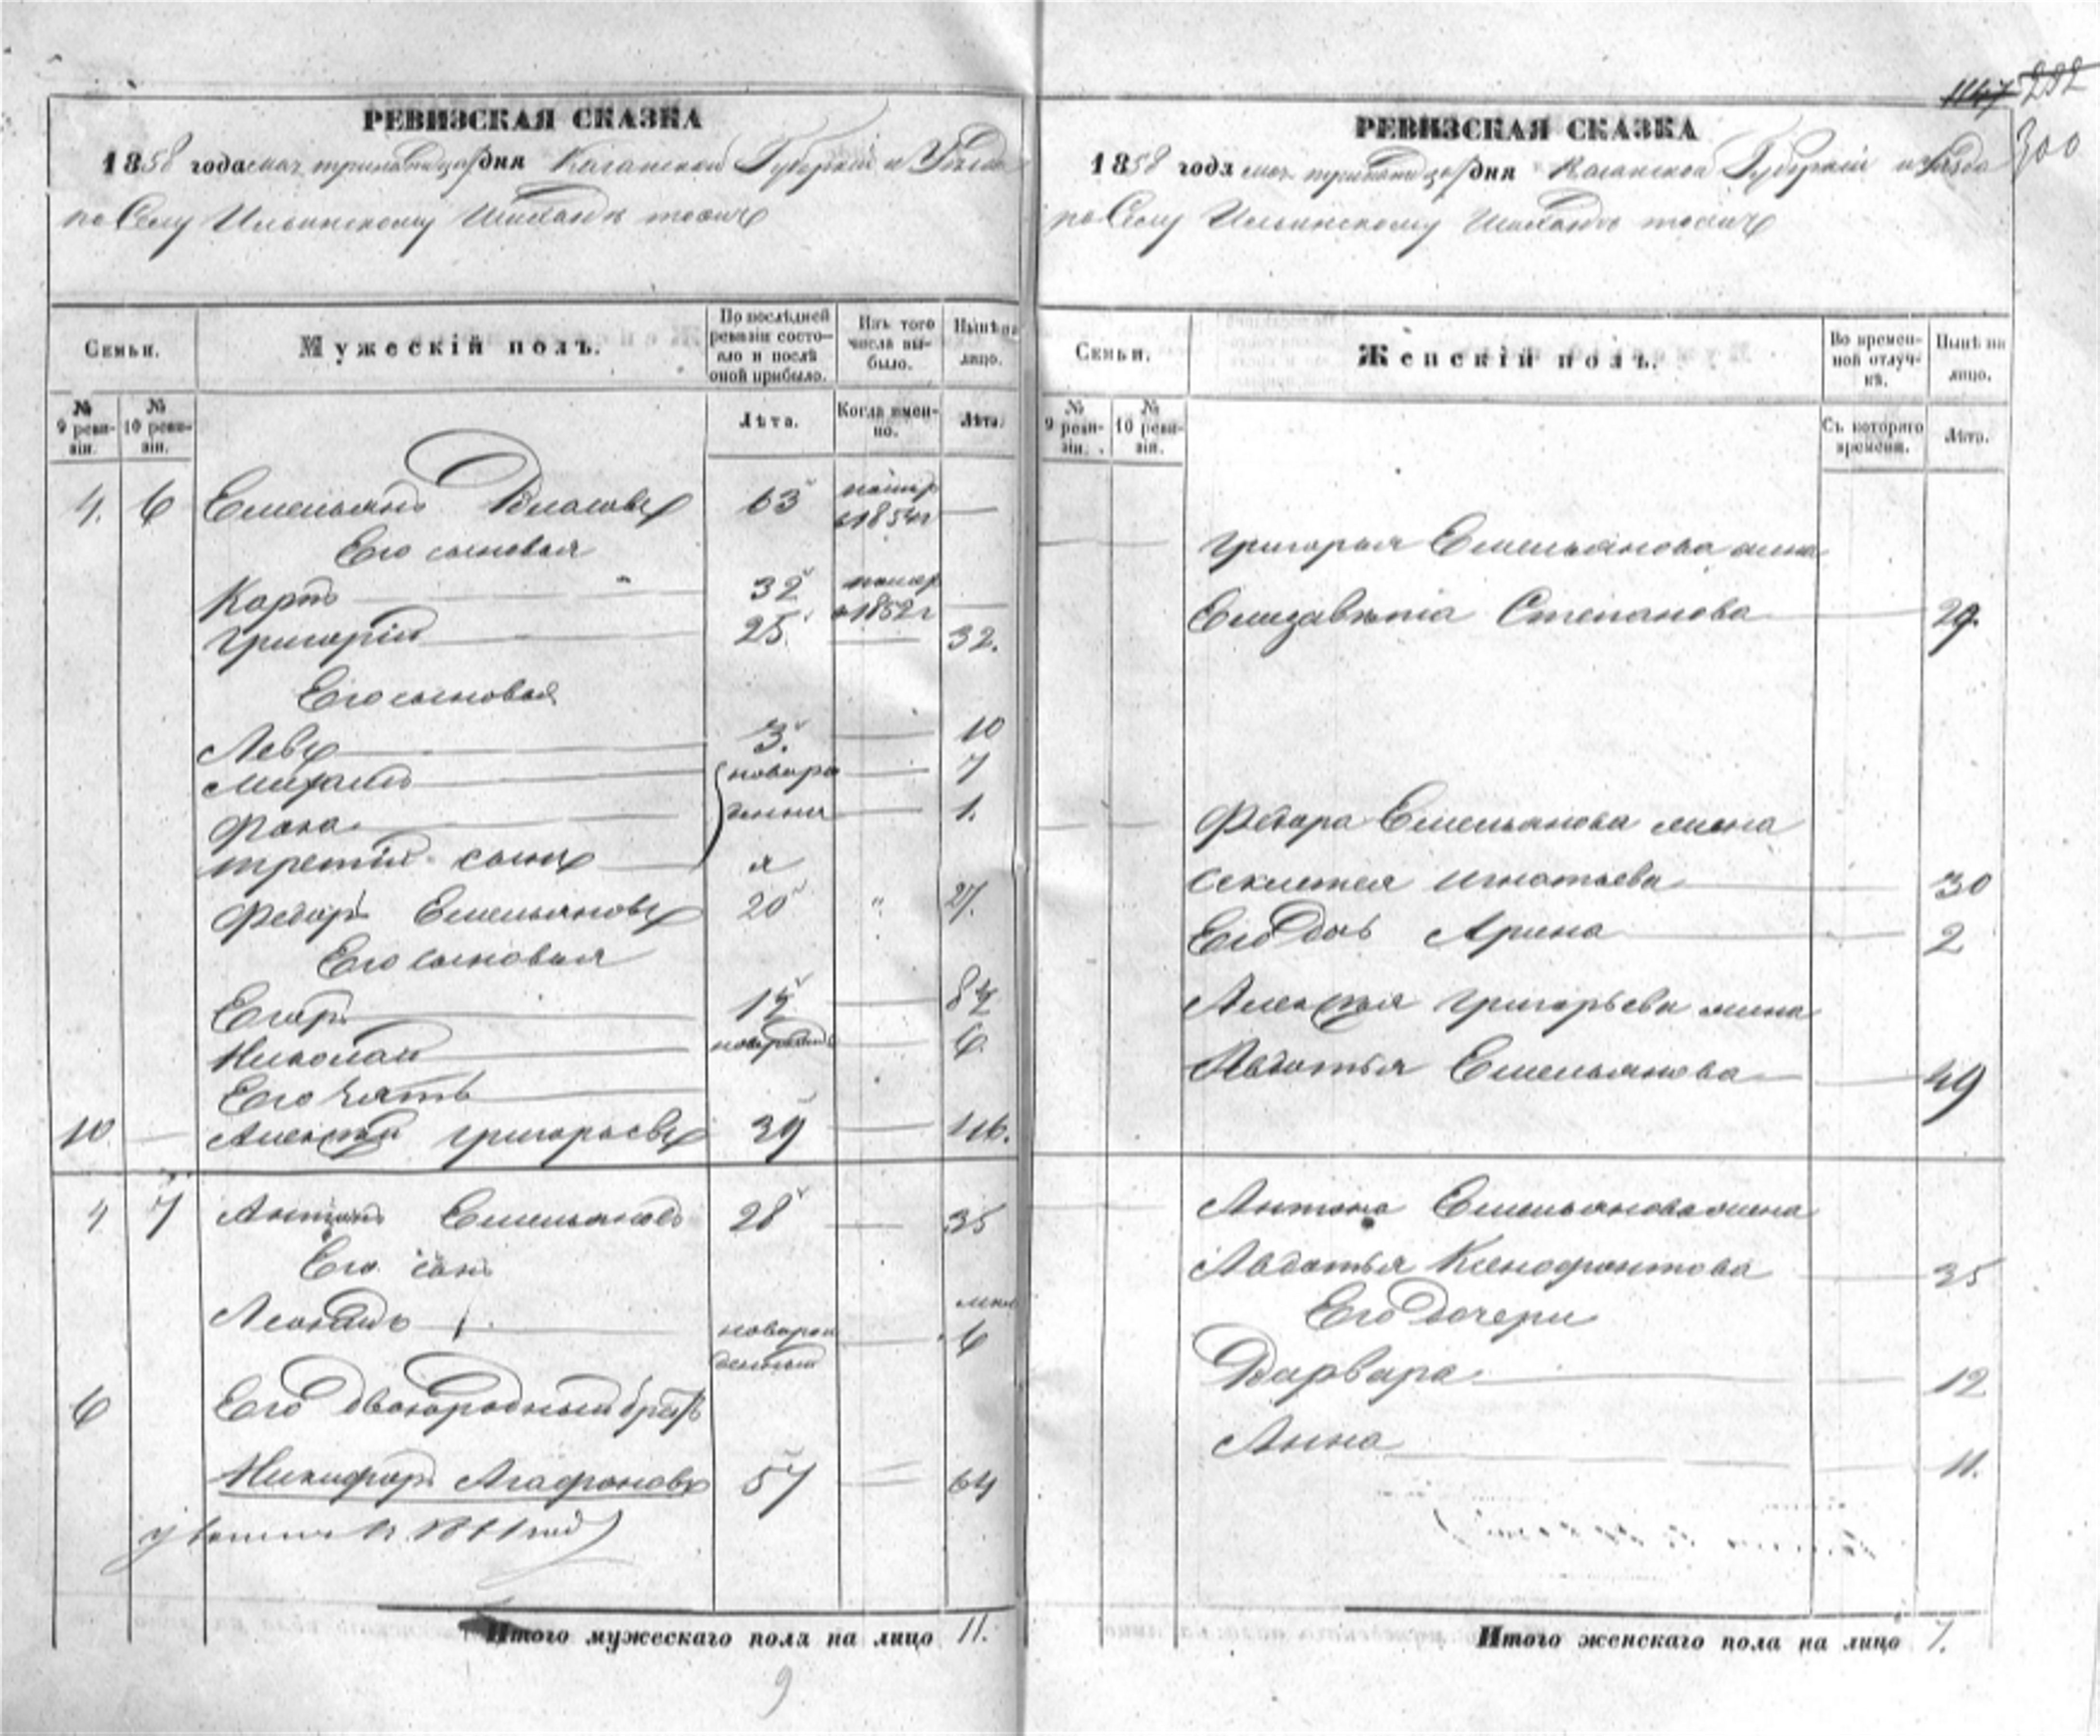 РЕВИЗСКАЯ СКАЗКА
1858 года мая тринадцать дня Казанской Губернии и Уезда
по Селу Ильинскому Шихазда тожъ
Семьи.
Мужескій полъ.
По послѣдней ревизіи состояло и послѣ оной прибыло.
Изъ того числа выбыло.
Нынѣ на лицо.
№ 9 ревизіи.
№ 10 ревизіи.
Лѣта.
Когда именно.
Лѣта.
4. 6 Емельянъ Власовъ 63 помер в 1854 г —
Его сыновья
Карпъ 32 помер в 1852 г —
Григорій 25. — 32.
Его сыновья
Левъ 3. — 10
Михаилъ новоро — 7
Фока — 1.
третій сынъ я
Федоръ Емельяновъ 20 " 27.
Его сыновья
Егоръ —
Николай новорожд — 6
Его зять
10 — Алексѣй Григорьевъ 39 — 46.
4 7 Антонъ Емельяновъ 28 — 35
Его сынъ
Леонтій новорожденный — 6
6 Его двоюродный братъ
Никифоръ Агафоновъ 57 — 64
Итого мужескаго пола на лицо 11.
9
1147 282
300
РЕВИЗСКАЯ СКАЗКА
1858 года мая тринадцать дня Казанской Губерніи и Уезда
по Селу Ильинскому тожъ
Семьи.
Женскій полъ.
Во временной отлучкѣ.
Нынѣ на лицо.
№ 9 ревизіи.
№ 10 ревизіи.
Съ котораго времени.
Лѣта.
Григорья Емельянова жена
Елизавѣта Степанова 29.
Федора Емельянова жена
Секлетея Игнатьева 30
Его дочь Арина 2
Алексѣя Григорьева жена
Авдотья Емельянова 49
Антона Емельянова жена
Авдотья Ксенофонтова 35
Его дочери
Варвара 12
Анна 11.
Итого женскаго пола на лицо 7.